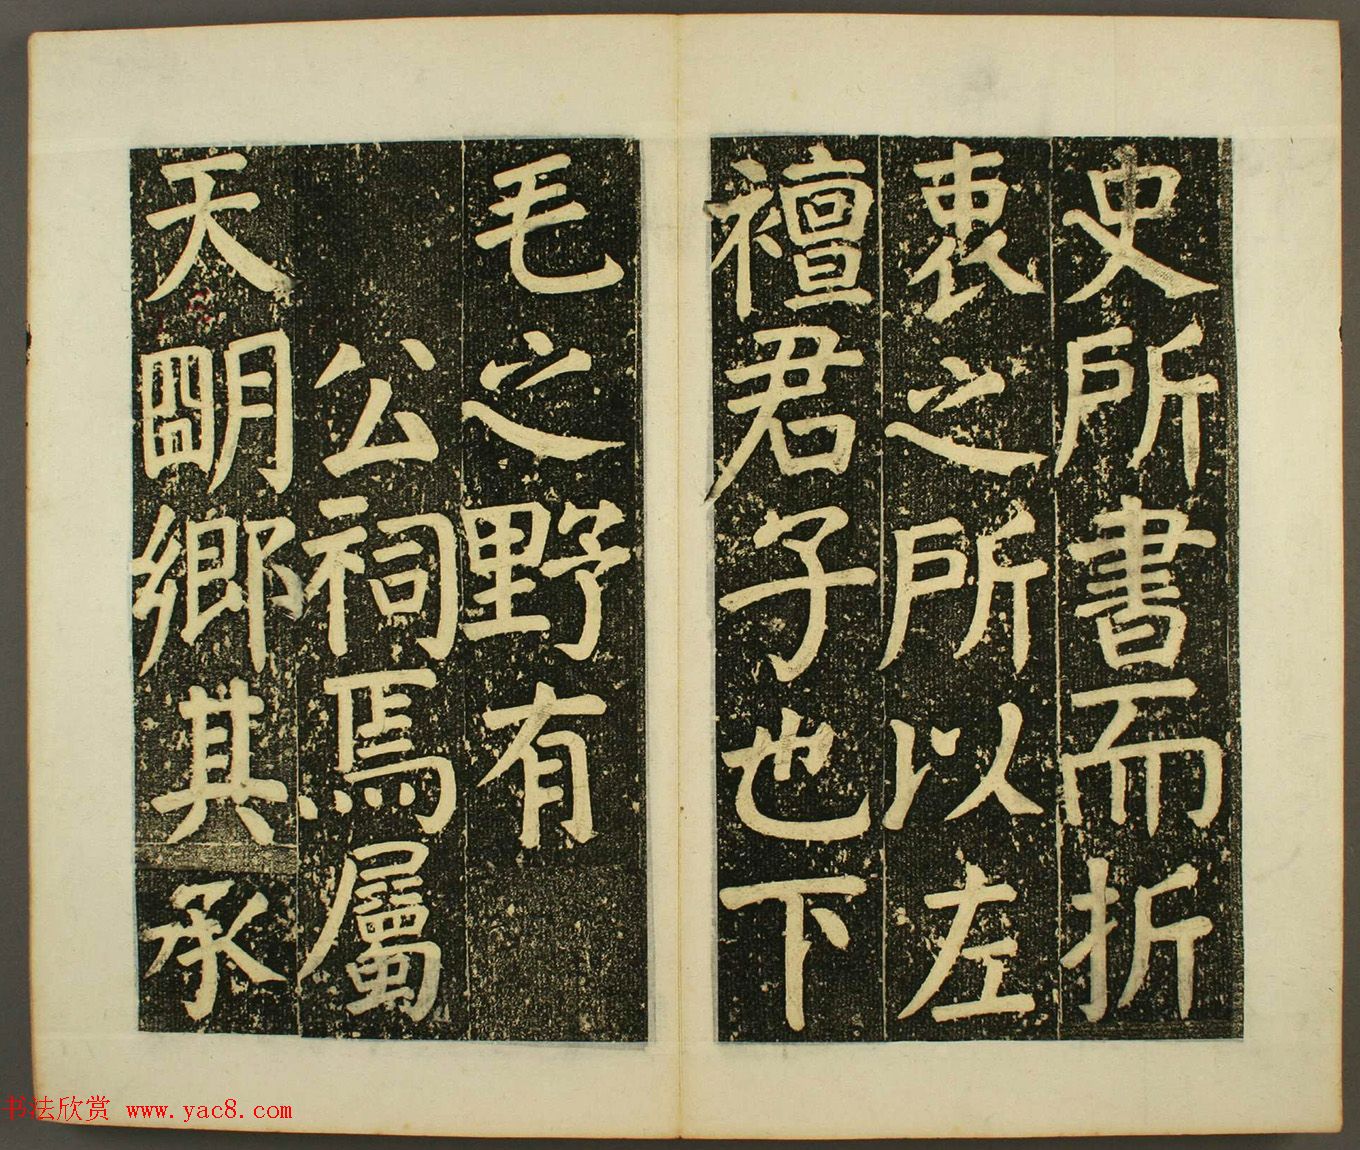 史所書而折
衷之所以左
襢君子也下
毛之野有
公祠焉屬
天朙鄉其承
书法欣赏 www.yac8.com